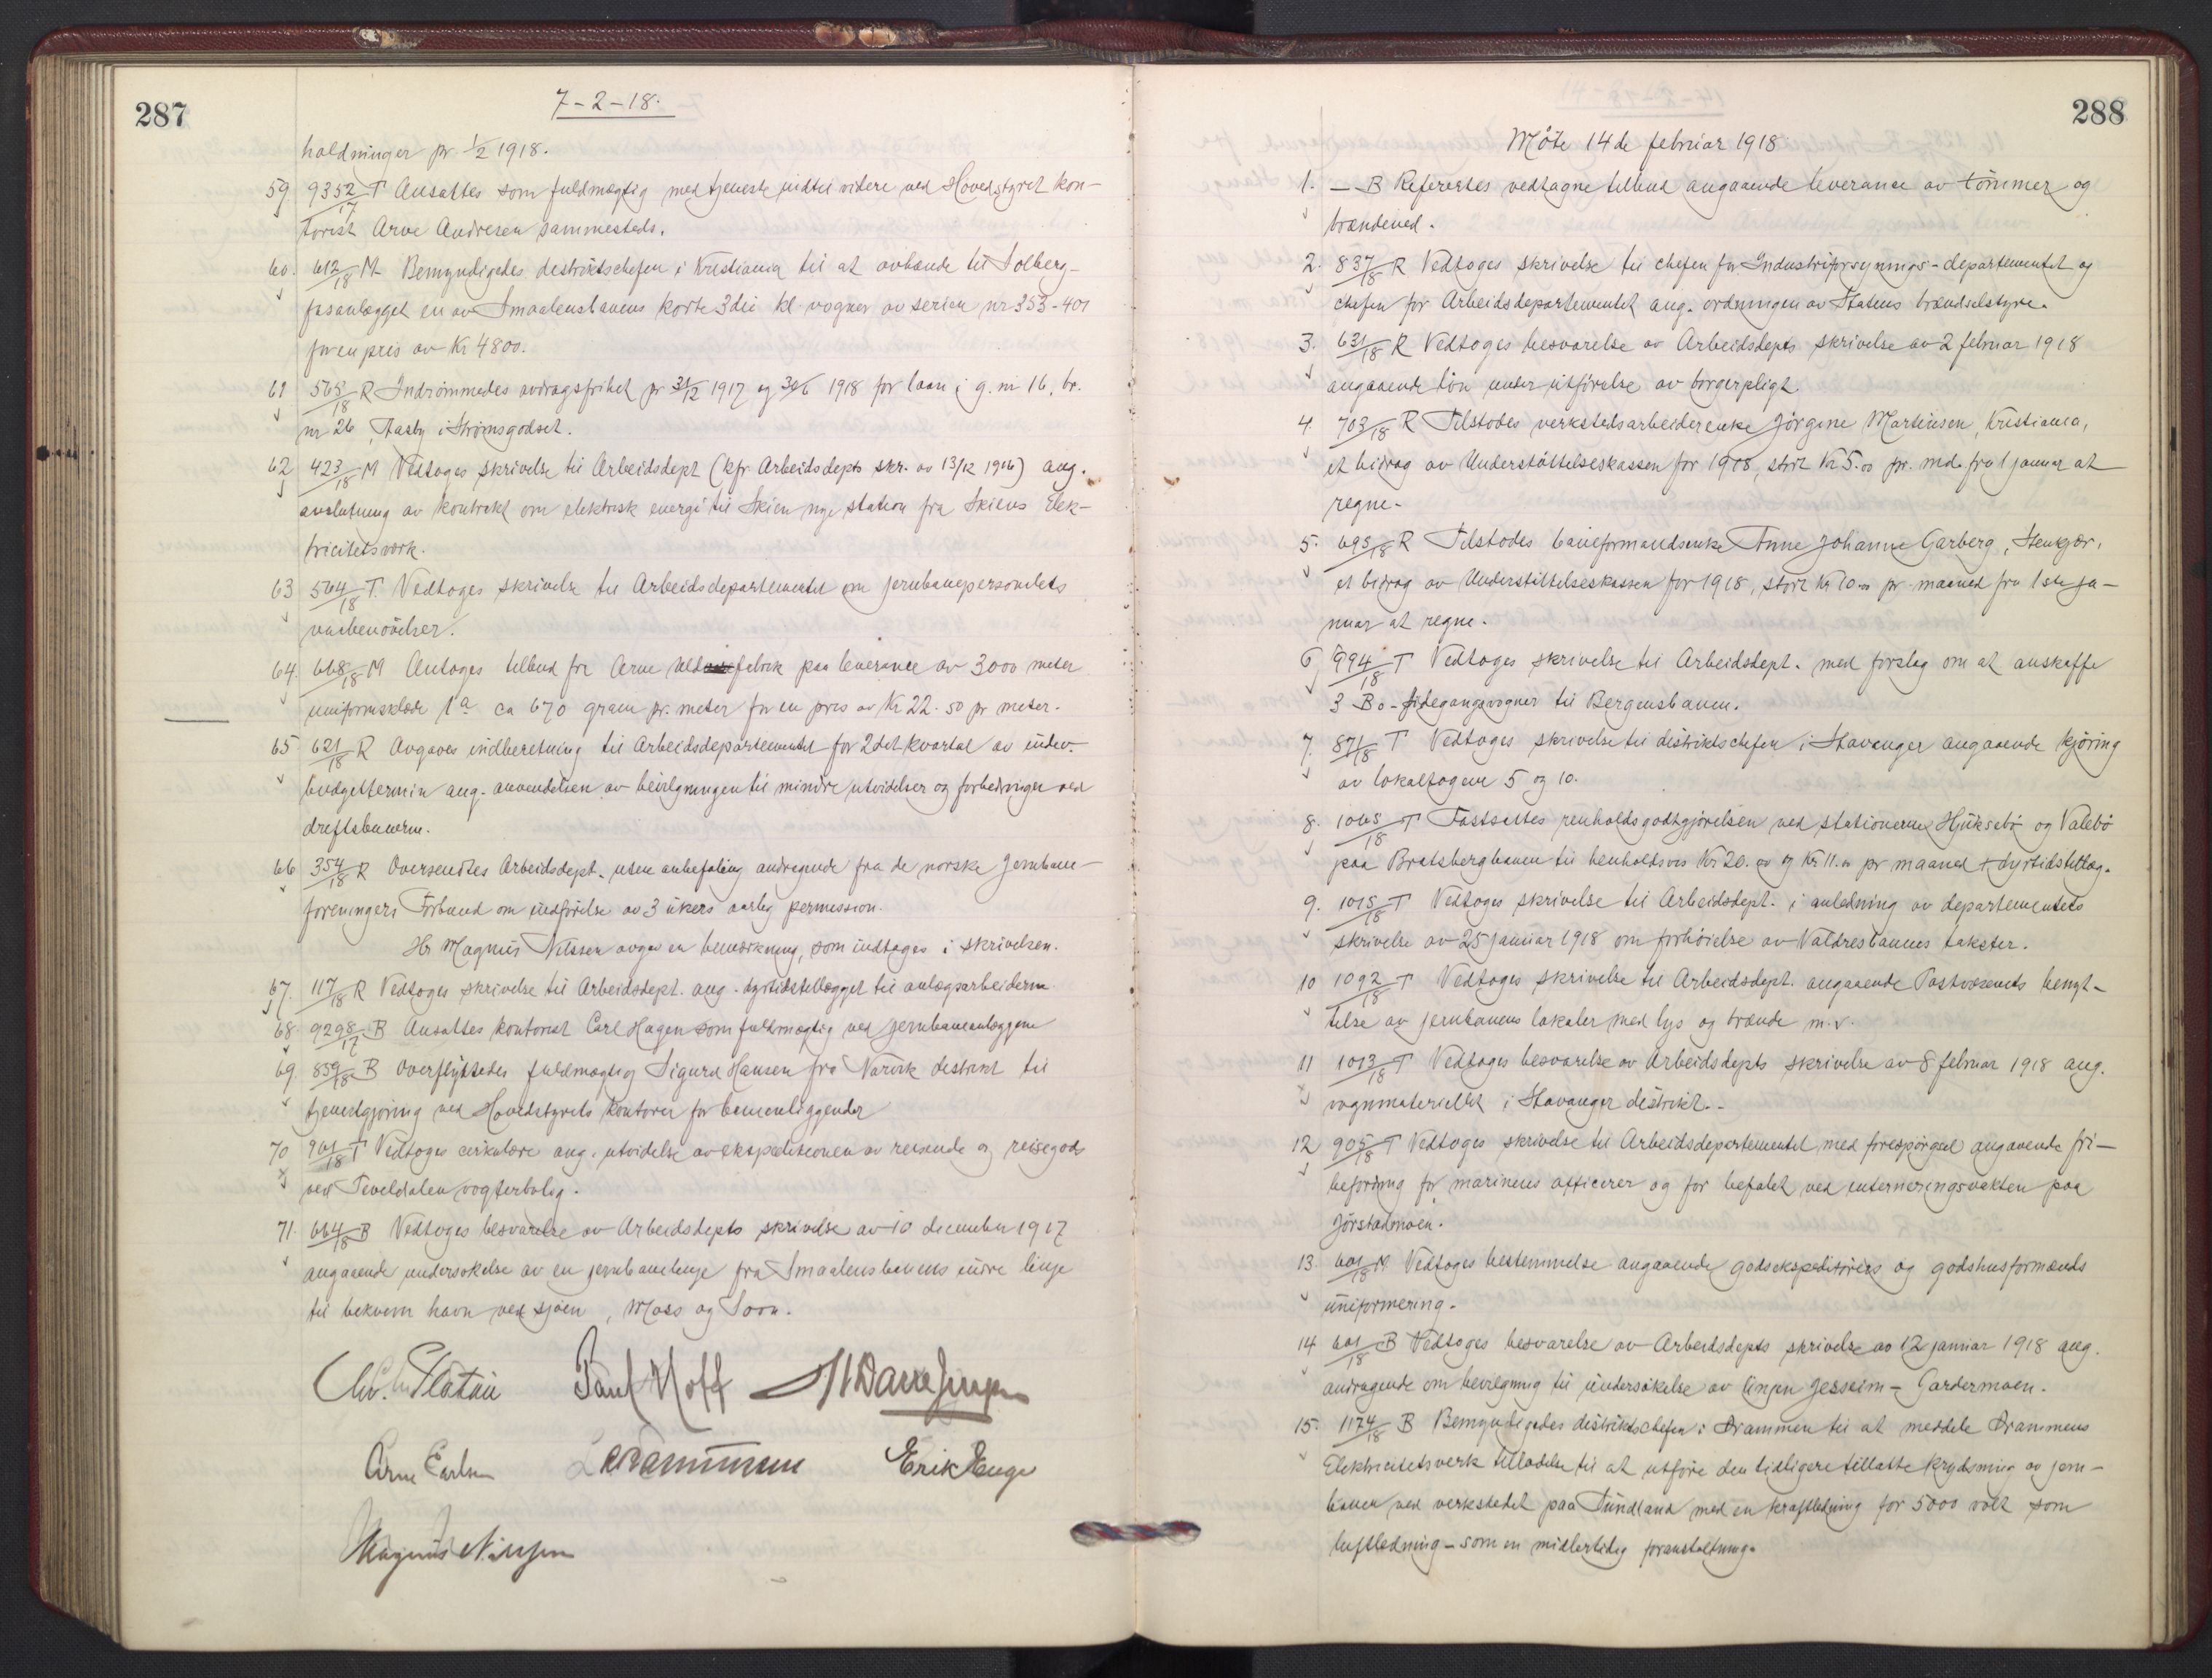 287
7-2-18.
holdninger pr. 1/2 1918.
59. 9352/17 T Ansattes som fuldmægtig med tjeneste indtil videre ved Hovedstyret kon-
torist Arne Andresen sammesteds.
60. 612/18 M Bemyndigedes distriktschefen i Kristiania til at avhænde til Solberg-
fosanlægget en av Smaalensbanens korte 3die kl. vogner av serien nr 353-401
for en pris av Kr 4800.
61 565/18 R Indrømmedes avdragsfrihet pr 31/12 1917 og 30/6 1918 for laan i g. nr 16, br.
nr 26, Aasby i Strømsgodset.
62 423/18 M Vedtoges skrivelse til Arbeidsdept (kfr. Arbeidsdepts skr. av 13/12 1916) ang.
avslutning av kontrakt om elektrisk energi til Skien nye station fra Skiens Elek-
tricitetsverk.
63 564/18 T. Vedtoges skrivelse til Arbeidsdepartementet om jernbanepersonalets
vaabenøvelser.
64. 668/18 M Antoges tilbud fra Arne fabrik paa leverance av 3000 meter
uniformsklæde 1a ca 670 gram pr. meter for en pris av Kr 22.50 pr meter.
65 621/18 R Avgaves indberetning til Arbeidsdepartementet for 2det kvartal av indev.
budgettermin ang. anvendelsen av bevilgningen til mindre utvidelser og forbedringer ved
driftsbanerne.
66 354/18 R Oversendtes Arbeidsdept. uten anbefaling andragende fra de norske Jernbane-
foreningers Forbund om indførelse av 3 ukers aarlig permission.
Hr Magnus Nilssen avgav en bemerkning, som indtages i skrivelsen.
67. 117/18 R Vedtoges skrivelse til Arbeidsdept. ang. dyrtidstillægget til anlægsarbeiderne.
68 9298/17 B Ansattes kontorist Carl Hagen som fuldmægtig ved jernbaneanlæggene
69. 859/18 B Overflyttedes fuldmægtig Sigurd Hansen fra Narvik distrikt til
tjenestgjøring ved Hovedstyrets kontorer for baneanliggender
70 901/18 T Vedtoges cirkulære ang. utvidelse av ekspeditionen av reisende og reisegods
ved Teveldalen vogterbolig.
71. 664/18 B Vedtoges besvarelse av Arbeidsdepts skrivelse av 10 december 1917
angaaende undersøkelse av en jernbanelinje fra Smaalensbanens indre linje
til bekvem havn ved sjøen, Moss og Soon.
Chr. Platou Paul Hoff
Arne Carlsen Erik Enge
Magnus Nilssen
288
Møte 14de februar 1918
1. — B Refereredes vedtagne tilbud angaaende leverance av tømmer og
brændeved.
2. 837/18 R Vedtoges skrivelse til chefen for Industriforsynings-departementet og
chefen for Arbeidsdepartementet ang. ordningen av Statens brændselstyre.
3. 631/18 R Vedtoges besvarelse av Arbeidsdepts skrivelse av 2 februar 1918
angaaende løn under utførelse av borgerpligt.
4. 703/18 R Tilstodes verkstedsarbeiderenke Jørgine Martinsen, Kristiania,
et bidrag av Understøttelseskassen for 1918, stort Kr 5.00 pr. md. fra 1 januar at
regne.
5. 695/18 R Tilstodes baneformandsenke Anne Johanne Garberg, Stenkjær,
et bidrag av Understøttelseskassen for 1918, stort Kr 10.00 pr maaned fra 1ste ja-
nuar at regne.
6. 994/18 T Vedtoges skrivelse til Arbeidsdept. med forslag om at anskaffe
3 Bo-sidegangsvogner til Bergensbanen.
7. 871/18 T Vedtoges skrivelse til distriktschefen i Stavanger angaaende kjøring
av lokaltogene 5 og 10.
8. 1065/18 T Fastsattes renholdsgodtgjørelsen ved stationerne Hjuksebø og Valebø
paa Bratsbergbanen til henholdsvis Kr 20.00 og Kr 11.00 pr maaned + dyrtidstillæg.
9. 1015/18 T Vedtoges skrivelse til Arbeidsdept. i anledning av departementets
skrivelse av 25 januar 1918 om forhøielse av Valdresbanens takster.
10 1092/18 T Vedtoges skrivelse til Arbeidsdept. angaaende Postvæsenets benyt-
telse av jernbanens lokaler med lys og brænde m.v.
11 1013/18 T Vedtoges besvarelse av Arbeidsdepts skrivelse av 8 februar 1918 ang.
vognmateriellet i Stavanger distrikt.
12 905/18 T Vedtoges skrivelse til Arbeidsdepartementet med forespørgsel angaaende fri-
befordring for marinens officerer og for befalet ved interneringsvakten paa
Jørstadmoen.
13. 601/18 M. Vedtoges bestemmelse angaaende godsekspeditørers og godshusformænds
uniformering.
14 601/18 B Vedtoges besvarelse av Arbeidsdepts skrivelse av 12 januar 1918 ang.
andragende om bevilgning til undersøkelse av linjen Jessheim-Gardermoen.
15. 1174/18 B Bemyndigedes distriktschefen i Drammen til at meddele Drammens
Elektricitetsverk tilladelse til at utføre den tidligere tillatte krydsning av jern-
banen ved verkstedet paa Sundland med en kraftledning for 5000 volt som
luftledning - som en midlertidig foranstaltning.